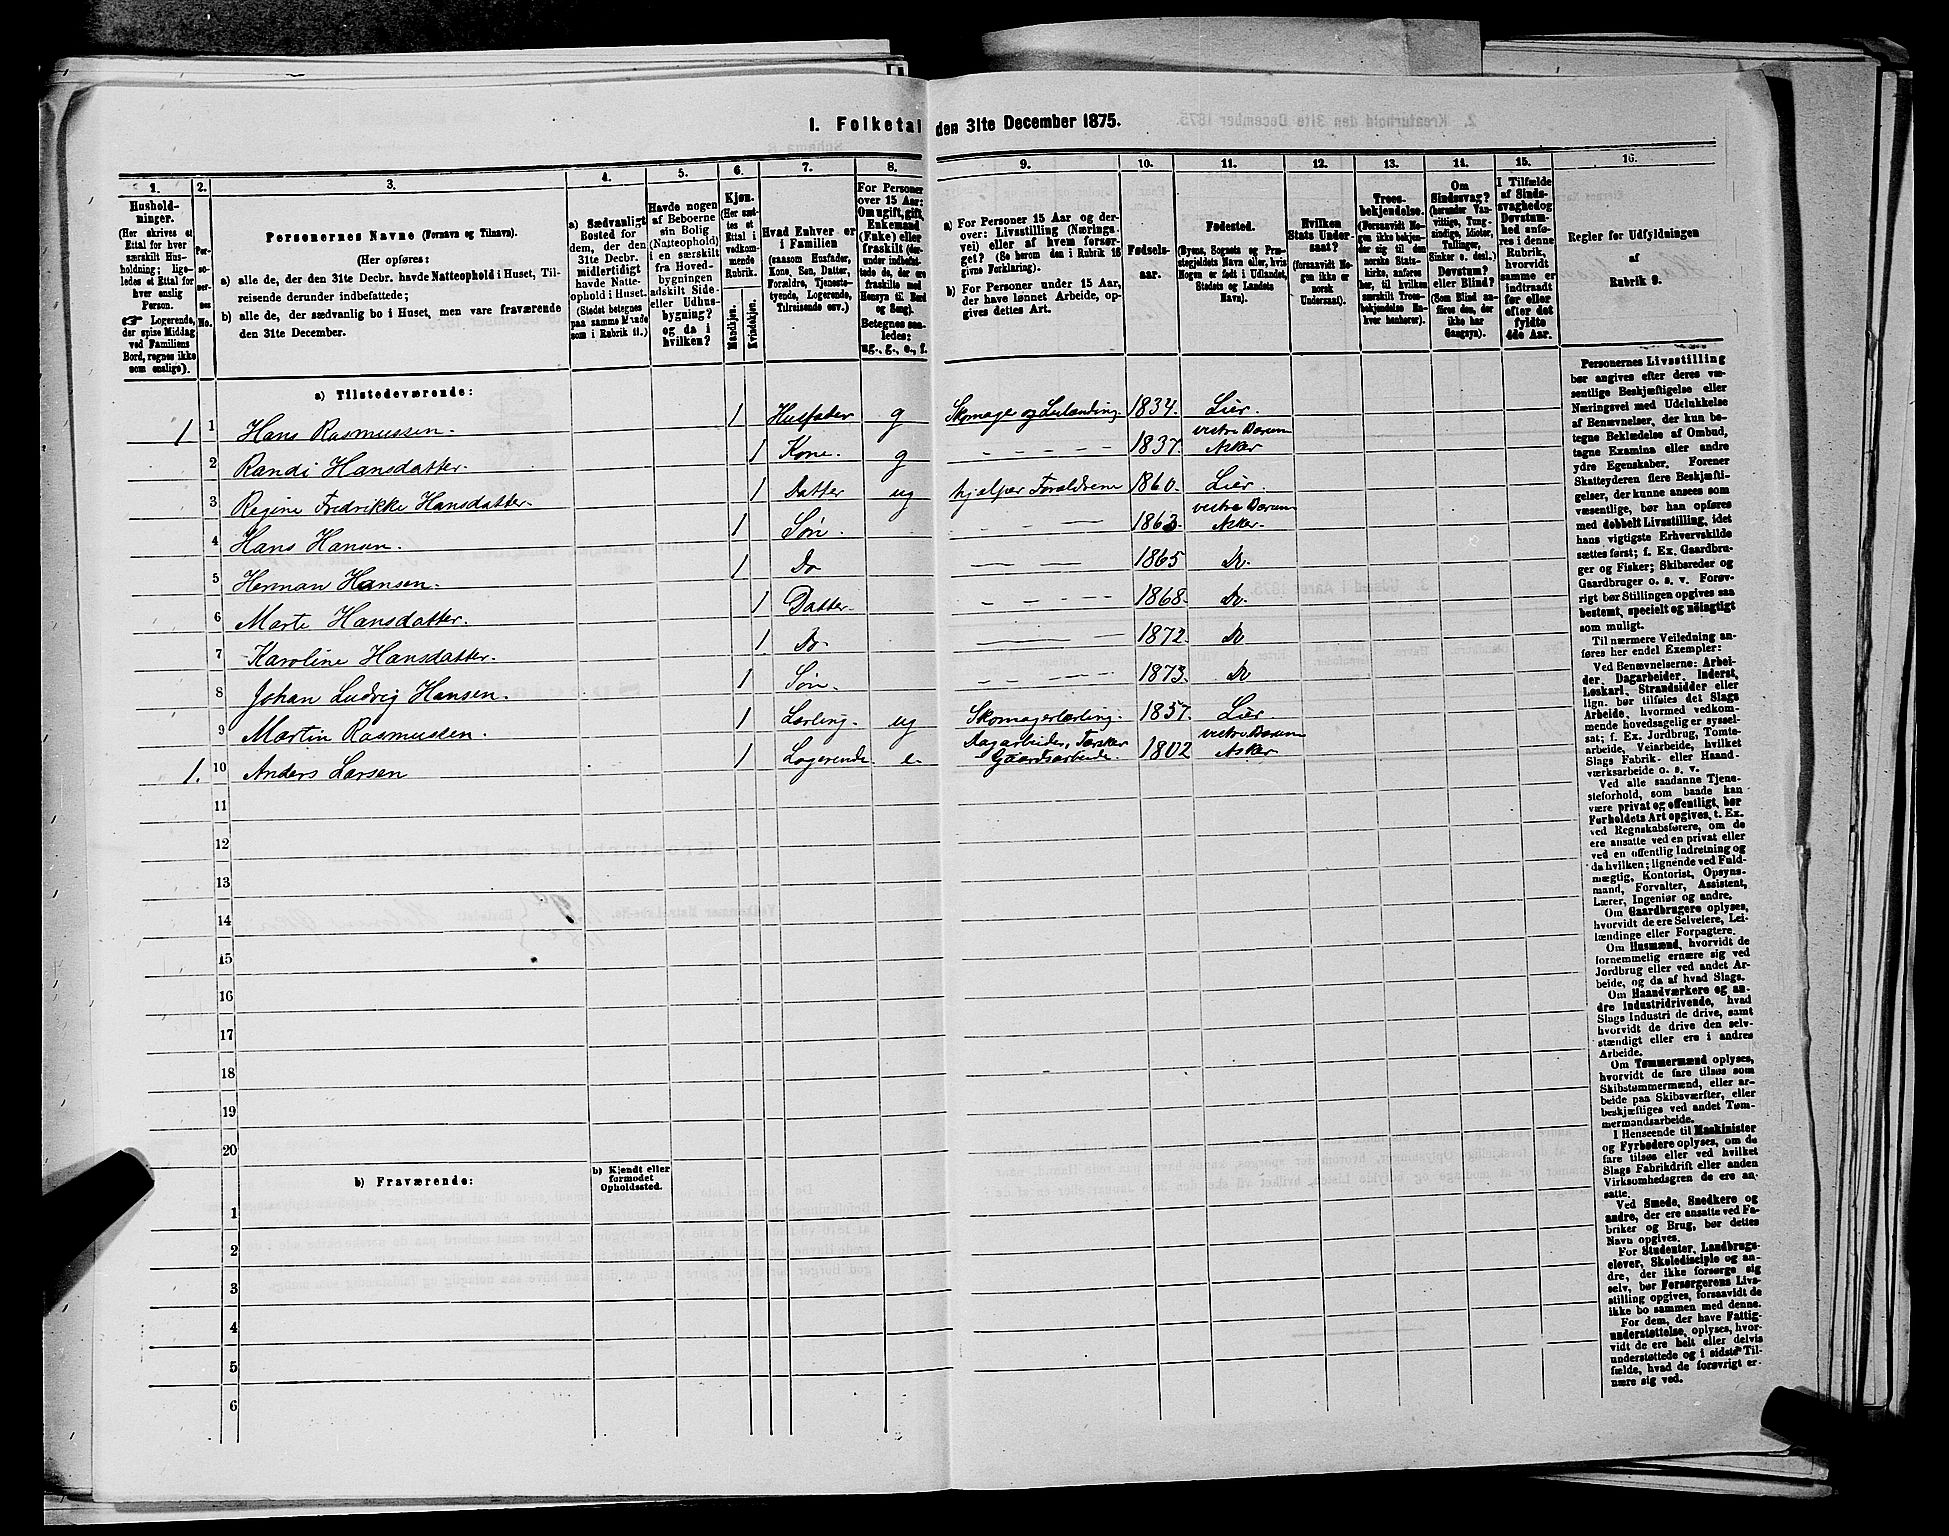 1. Folketal den 31te December 1875.
1.
Hushold-
ninger.
(Her skrives et
Ettal for hver
særskilt Hus-
holdning; lige-
ledes et Ettal for
hver enslig
Person.
☞ Logerende,
der spise Middag
ved Familiens
Bord, regnes ikke
som enslige).
2.
Per-
so-
ner-
nes
No.
3.
Personernes Navne (Fornavn og Tilnavn).
(Her opføres:
a) alle de, der den 31te Decbr. havde Natteophold i Huset, Til-
reisende derunder indbefattede;
b) alle de, der sædvanlig bo i Huset, men vare fraværende
den 31te December.
4.
a) Sædvanligt
Bosted for
dem, der den
31te Decbr.
midlertidigt
havde Natte-
ophold i Huset.
(Stedet betegnes
paa samme Maade
som i Rubrik 11.)
5.
Havde nogen
af Beboerne
sin Bolig
(Natteophold)
i en særskilt
fra Hoved-
bygningen
adskilt Side-
eller Udhus-
bygning?
og da i
hvilken?
6.
Kjøn.
(Her sæt-
tes et
Ettal i
vedkom-
mende
Rubrik.
Mandkjøn.
Kvindekjøn.
7.
Hvad Enhver er
i Familien
(saasom Husfader,
Kone, Søn, Datter,
Forældre, Tjeneste-
tyende, Logerende,
Tilreisende osv.)
8.
For Personer
over 15 Aar:
Om ugift, gift,
Enkemand
(Enke) eller
fraskilt (der-
under indbefat-
tede de, der ere
fraskilte med
Hensyn til Bord
og Seng).
Betegnes saa-
ledes:
ug., g., e., f.
9.
a) For Personer 15 Aar og der-
over: Livsstilling (Nærings-
vei) eller af hvem forsør-
get? (Se herom den i Rubrik 16
givne Forklaring).
b) For Personer under 15 Aar,
der have lønnet Arbeide, op-
gives dettes Art.
10.
Fødsels-
aar.
11.
Fødested.
(Byens, Sognets og Præ-
stegjeldets Navn eller, hvis
Nogen er født i Udlandet,
Stedets og Landets
Navn).
12.
Hvilken
Stats Under-
saat?
(forsaavidt No-
gen ikke er
norsk
Undersaat).
13.
Troes-
bekjendelse.
(Forsaavidt No-
gen ikke bekjen-
der sig til den
norske Stats-
kirke, anføres
her, til hvilken
særskilt Troes-
bekjendelse En-
hver henhører).
14.
Om
Sindssvag?
(herunder Van-
vittige, Tung-
sindige, Idioter,
Tullinger,
Sinker o. desl.)
Døvstum?
eller Blind?
(Som Blind an-
føres den, der
ikke har
Gangsyn).
15.
I Tilfælde
af Sinds-
svaghed og
Døvstum-
hed anfø-
res i denne
Rubrik,
hvorvidt
samme er
indtraadt
før eller
efter det
fyldte
4de Aar.
16.
Regler for Udfyldningen
af
Rubrik 9.
a) Tilstedeværende:
1 1 Hans Rasmussen. 1 Husfader g Skomager og Leilænding 1834. Lier.
2 Randi Hansdatter 1 Kone. g - - - - 1837. vestre Bærum Asker
3 Regine Fredrikke Hansdatter. 1 Datter ug hjælper Forældrene 1860. Lier.
4 Hans Hansen. 1 Søn. - - - 1863. vestre Bærum Asker.
5 Herman Hansen. 1 Do - - - 1865 Do.
6 Marte Hansdatter. 1 Datter. - - - - 1868. Do.
7 Karoline Hansdatter. 1 Do. 1872. Do
8 Johan Ludvig Hansen. 1 Søn. - - - - 1873. Do
9 Martin Rasmussen. 1 Lærling. ug Skomagerlærling. 1857. Lier.
1. 10 Anders Larsen 1 Logerende. e. Dagarbeider, Tærsker Gaardsarbeide. 1802 vestre Bærum Asker
11
12
13
14
15
16
17
18
19
20
b) Fraværende:
b) Kjendt eller
formodet
Opholdssted.
1
2
3
4
5
6
Personernes Livsstilling
bør angives efter deres væ-
sentlige Beskjæftigelse eller
Næringsvei med Udelukkelse
af Benævnelser, der kun be-
tegne Beklædelse af Ombud,
tagne Examina eller andre
ydre Egenskaber. Forener
Skatteyderen flere Beskjæfti-
gelser, der kunne ansees som
væsentlige, bør han opføres
med dobbelt Livsstilling, idet
hans vigtigste Erhvervskilde
sættes først; f. Ex. Gaardbru-
ger og Fisker; Skibsreder og
Gaardbruger o. s. v. Forøv-
rigt bør Stillingen opgives saa
bestemt, specielt og nøiagtigt
som muligt.
Til nærmere Veiledning an-
føres her endel Exempler:
Ved Benævnelserne: Arbei-
der, Dagarbeider, Inderst,
Løskarl, Strandsidder eller
lign. bør tilføies det Slags
Arbeide, hvormed vedkom-
mende hovedsagelig er syssel-
sat; f. Ex. Jordbrug, Tomte-
arbeide, Veiarbeide, hvilket
Slags Fabrik- eller Haand-
værksarbeide o. s. v.
Ved alle saadanne Tjene-
steforhold, som baade kan
være privat og offentligt, bør
Forholdets Art opgives, t. Ex.
ved Regnskabsførere, om de
ere ansatte ved en privat eller
ved en offentlig Indretning og
da hvilken; lignende ved Fuld-
mægtig, Kontorist, Opsyns-
mand, Forvalter, Assistent,
Lærer, Ingeniør og andre.
Om Gaardbrugere oplyses,
hvorvidt de ere Selveiere, Lei-
lændinge eller Forpagtere.
Om Husmænd, hvorvidt de
fornemmelig ernære sig ved
Jordbrug eller ved andet Ar-
beide, og da af hvad Slags.
Om Haandværkere og an-
dre Industridrivende, hvad
Slags Industri de drive, samt
hvorvidt de drive den selv-
stændigt eller ere i andres
Arbeide.
Om Tømmermænd oplyses,
hvorvidt de fare tilsøs som
Skibstømmermænd, eller ar-
beide paa Skibsværfter, eller
beskjæftiges ved andet Tøm-
mermandsarbeide.
I Henseende til Maskinister
og Fyrbødere oplyses, om de
fare tilsøs eller ved hvilket
Slags Fabrikdrift eller anden
Virksomhedsgren de ere an-
satte.
Ved Smede, Snedkere og
andre, der ere ansatte ved Fa-
briker og Brug, bør dettes
Navn opgives.
For Studenter, Landbrugs-
elever, Skoledisciple og an-
dre, der ikke forsørge sig
selv, bør Forsørgerens Livs-
stilling opgives, forsaavidt de
ikke bo sammen med denne.
For dem, der have Fattig-
understøttelse, oplyses, hvor-
vidt de ere helt eller delvis
understøttede og i sidste Til-
fælde, hvad de forøvrigt er-
nære sig ved.